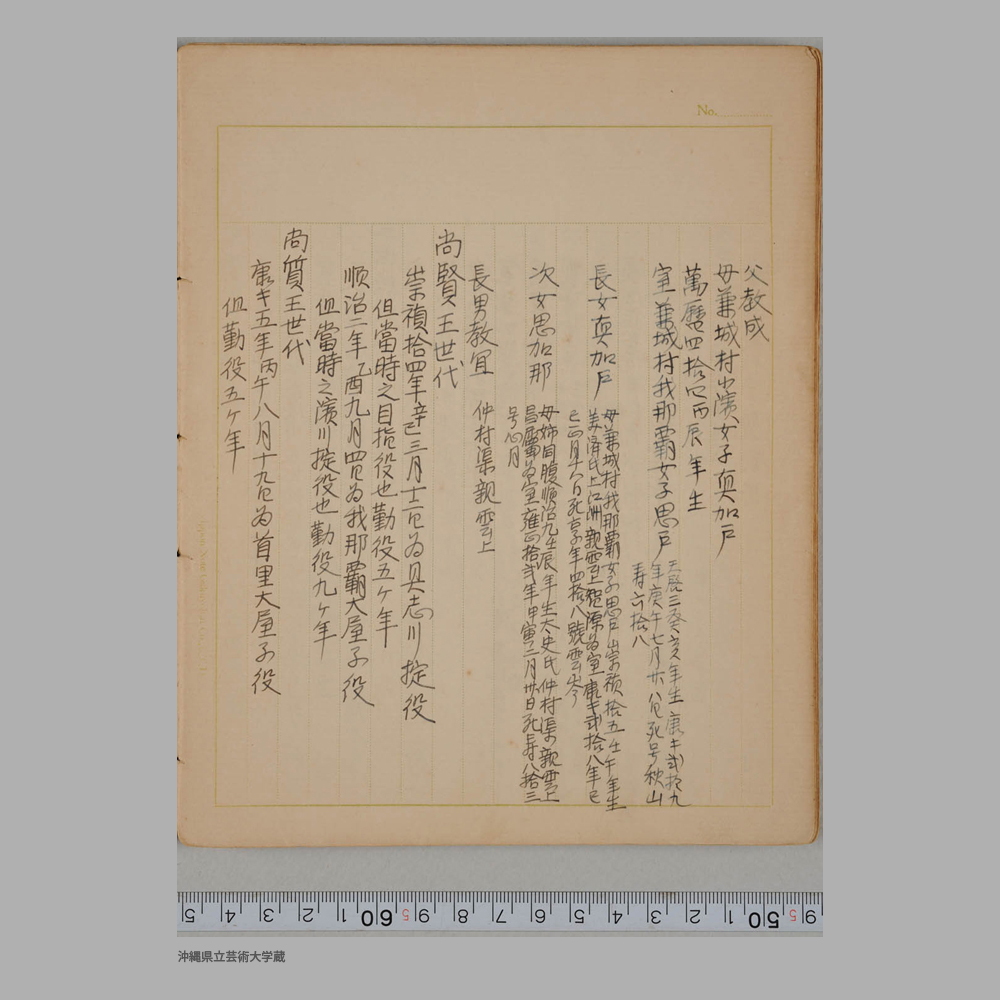 No.
父教成
母兼城村小濱女子真加戸
萬暦四拾四丙辰年生
室兼城村我那覇女子思戸
天啓三癸亥年生康熙弐拾九
年庚午七月廿八日死号秋山
寿六拾八
長女真加戸
母兼城村我那覇女子思戸崇禎拾五壬午年生
美済氏上江洲親雲上
室康熙弐拾八年己
巳正月十六日死享年四拾八號雲岑
次女思加那
母姉同腹順治九壬辰年生大史氏仲村渠親雲上
為室雍正拾弐年甲寅二月廿日死寿八拾三
号心月
長男教宜 仲村渠親雲上
尚賢王世代
崇禎拾四年辛巳三月十二日為具志川掟役
但當時之目指役也勤役五ヶ年
順治二年乙酉九月四日為我那覇大屋子役
但當時之濱川掟役也勤役九ヶ年
尚質王世代
康熙五年丙午八月十九日為首里大屋子役
但勤役五ヶ年
5 4 3 2 1 60 5 9 8 7 6 5 4 3 2 1 50 5 9
沖縄県立芸術大学蔵